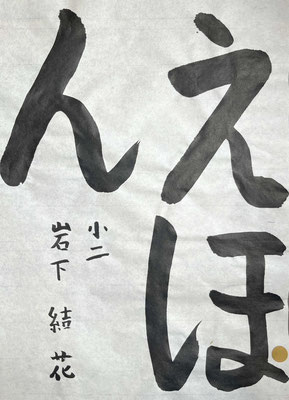 えほ
ん
小二
岩下結花